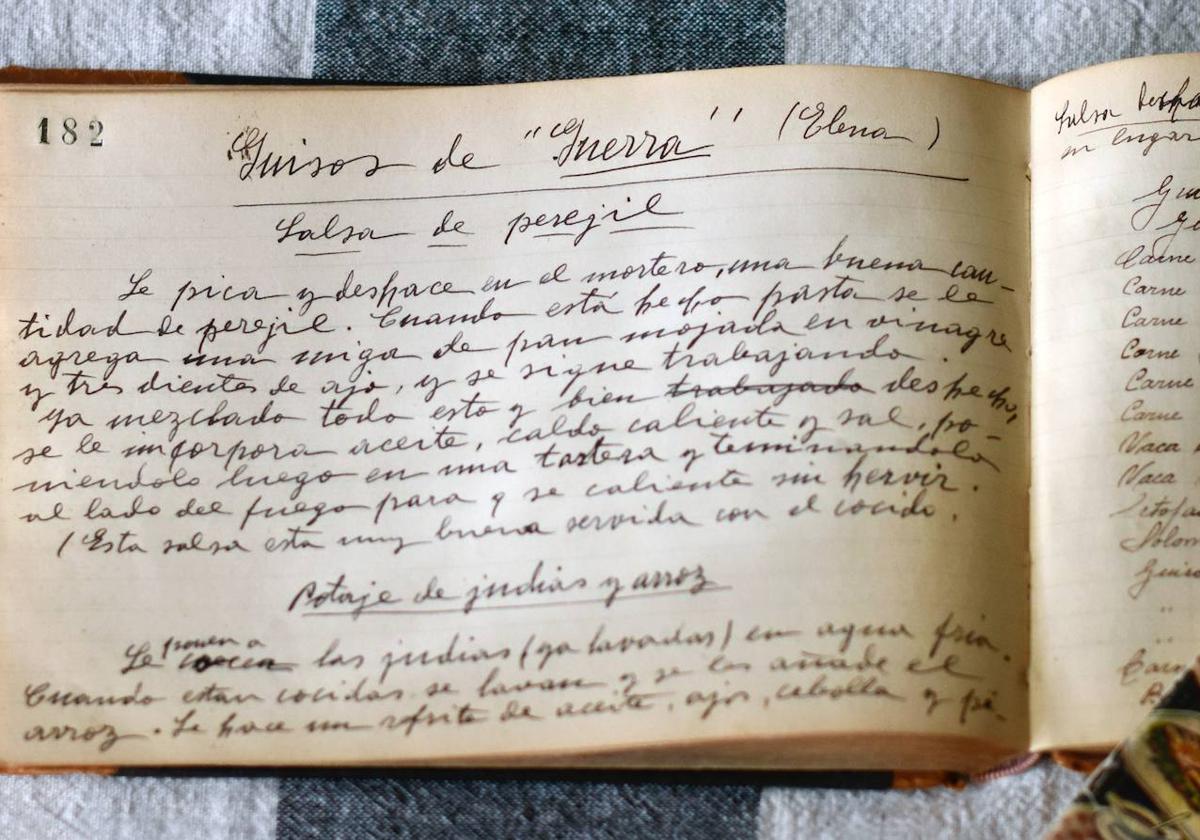 182
Guisos de "Guerra" (Elena)
Salsa de perejil
Se pica y deshace en el mortero, una buena can-
tidad de perejil. Cuando está hecho pasta se le
agrega una miga de pan mojada en vinagre
y tres dientes de ajo, y se sigue trabajando.
Ya mezclado todo esto y bien trabajado deshecho,
se le incorpora aceite, caldo caliente y sal, po-
niendolo luego en una tartera y teminandola
al lado del fuego para q se caliente sin hervir.
(Esta salsa esta muy buena servida con el cocido.
Potaje de judias y arroz
Se ponen a cocer las judias (ya lavadas) en agua fria.
Cuando estan cocidas se lavan y se les añade el
arroz. Se hace un refrito de aceite, ajos, cebolla y pi-
Salsa
en lugar
Carne
Carne
Carne
Carne
Carne
Carne
Vaca
Vaca
Estofa
Solom
Guiso
"
"